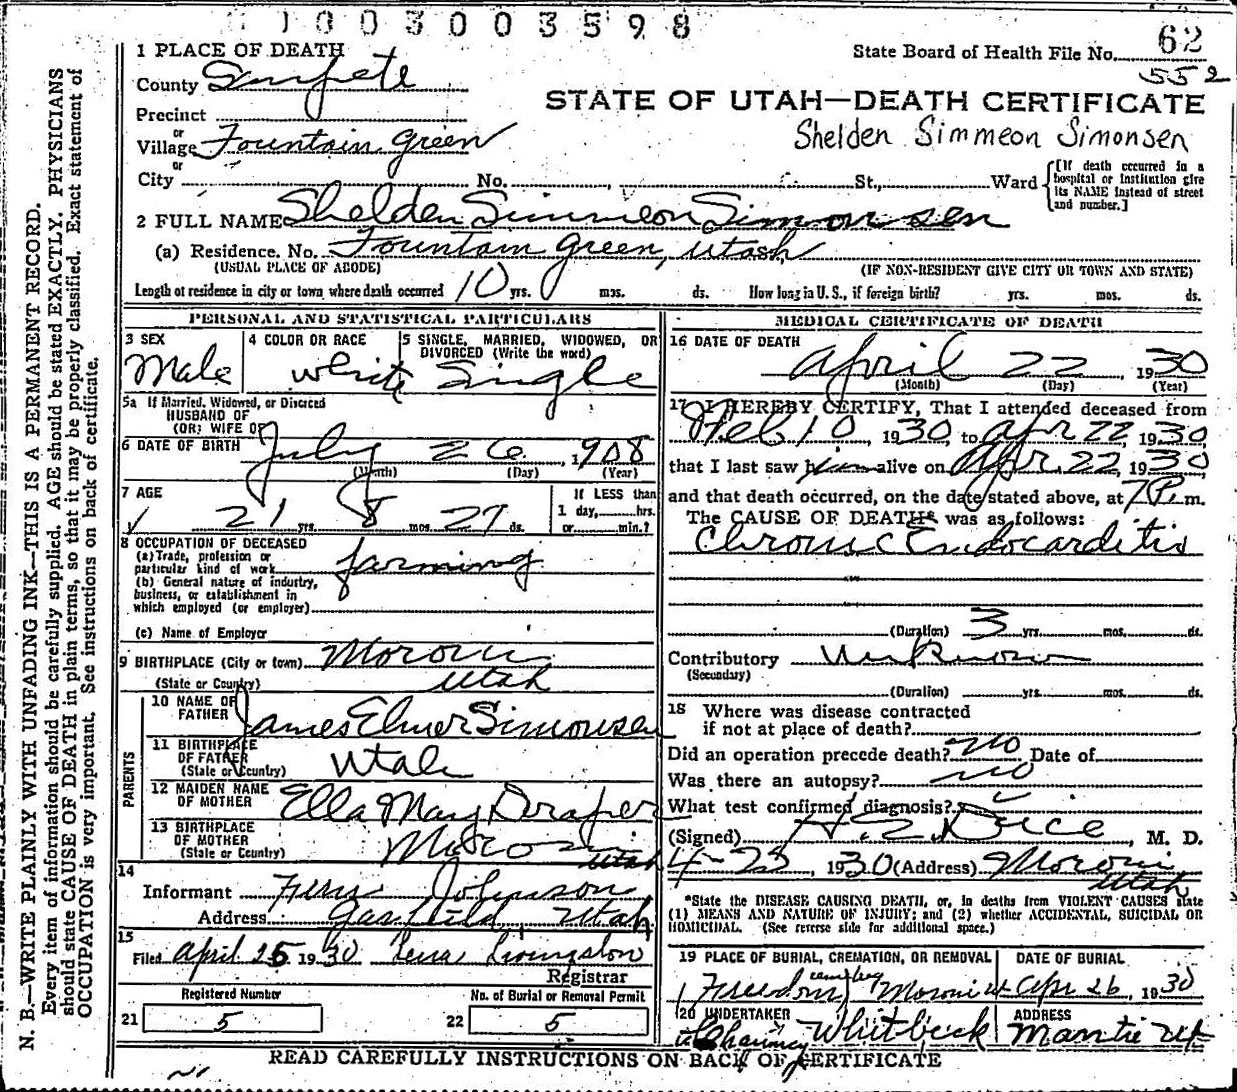 1003003598
1 PLACE OF DEATH
State Board of Health File No. 62
552
County Sanpete
STATE OF UTAH—DEATH CERTIFICATE
Precinct
Shelden Simmeon Simonsen
or
Village Fountain Green
or
City No. St., Ward
[If death occurred in a hospital or institution give its NAME instead of street and number.]
2 FULL NAME Shelden Simmeon Simonsen
(a) Residence. No. Fountain Green, Utah
(USUAL PLACE OF ABODE) (IF NON-RESIDENT GIVE CITY OR TOWN AND STATE)
Length of residence in city or town where death occurred 10 yrs. mos. ds. How long in U. S., if foreign birth? yrs. mos. ds.
PERSONAL AND STATISTICAL PARTICULARS
3 SEX 4 COLOR OR RACE 5 SINGLE, MARRIED, WIDOWED, OR
DIVORCED (Write the word)
Male White Single
5a If Married, Widowed, or Divorced
HUSBAND OF
(OR) WIFE OF
6 DATE OF BIRTH July 26, 1908
(Month) (Day) (Year)
7 AGE
If LESS than
1 day, hrs.
21 yrs. 8 mos. 27 ds. or min.?
8 OCCUPATION OF DECEASED
(a) Trade, profession or
particular kind of work farming
(b) General nature of industry,
business, or establishment in
which employed (or employer)
(c) Name of Employer
9 BIRTHPLACE (City or town) Moroni
(State or Country) Utah
PARENTS
10 NAME OF
FATHER James Elmer Simonsen
11 BIRTHPLACE
OF FATHER
(State or Country) Utah
12 MAIDEN NAME
OF MOTHER Ella May Draper
13 BIRTHPLACE
OF MOTHER
(State or Country) Moroni Utah
14
Informant Johnson
Address Garfield Utah
15
Filed April 25 1930 Livingston
Registrar
Registered Number No. of Burial or Removal Permit
21 5 22 5
MEDICAL CERTIFICATE OF DEATH
16 DATE OF DEATH
April 22, 1930
(Month) (Day) (Year)
17 I HEREBY CERTIFY, That I attended deceased from
Feb 10, 1930, to Apr 22, 1930,
that I last saw him alive on Apr. 22, 1930
and that death occurred, on the date stated above, at 7 P. m.
The CAUSE OF DEATH* was as follows:
Chronic Endocarditis
(Duration) 3 yrs. mos. ds.
Contributory Unknown
(Secondary)
(Duration) yrs. mos. ds.
18 Where was disease contracted
if not at place of death?
Did an operation precede death? no Date of
Was there an autopsy? no
What test confirmed diagnosis?
(Signed) M. D.
1930 (Address) Moroni
Utah
*State the DISEASE CAUSING DEATH, or, in deaths from VIOLENT CAUSES state
(1) MEANS AND NATURE OF INJURY; and (2) whether ACCIDENTAL, SUICIDAL OR
HOMICIDAL. (See reverse side for additional space.)
19 PLACE OF BURIAL, CREMATION, OR REMOVAL DATE OF BURIAL
Freedom Moroni Ut Apr 26, 1930
20 UNDERTAKER ADDRESS
Chauncy Whitbeck Mantie Ut
READ CAREFULLY INSTRUCTIONS ON BACK OF CERTIFICATE
N. B.—WRITE PLAINLY WITH UNFADING INK—THIS IS A PERMANENT RECORD.
Every item of information should be carefully supplied. AGE should be stated EXACTLY. PHYSICIANS
should state CAUSE OF DEATH in plain terms, so that it may be properly classified. Exact statement of
OCCUPATION is very important. See instructions on back of certificate.